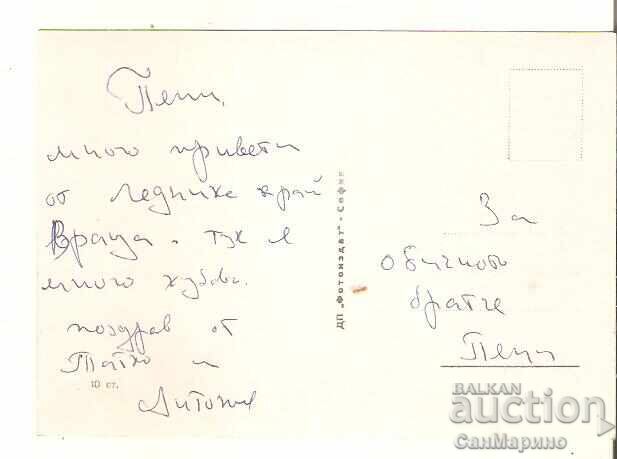 Пепи,
много привети
от Ледника край
Враца. тук е
много хубаво.
поздрав от
Татко и
10 ст.
ДП „Фотоиздат" - София
За
обичното
братче
Пепи
BALKAN
auction
СанМарино